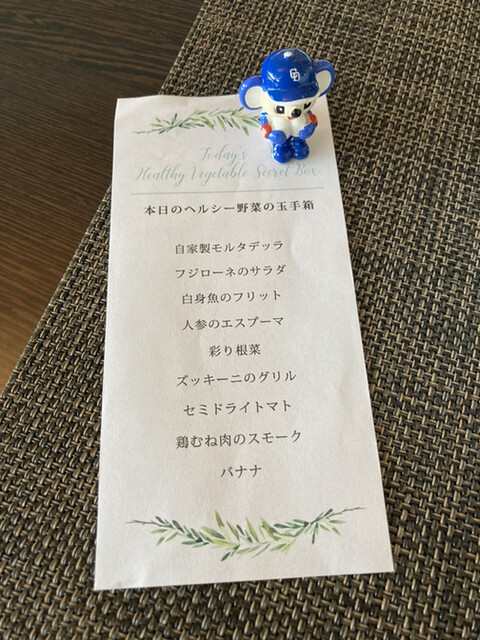 CD
Today's
Healthy Vegetable Secret Box
本日のヘルシー野菜の玉手箱
自家製モルタデッラ
フジローネのサラダ
白身魚のフリット
人参のエスプーマ
彩り根菜
ズッキーニのグリル
セミドライトマト
鶏むね肉のスモーク
バナナ